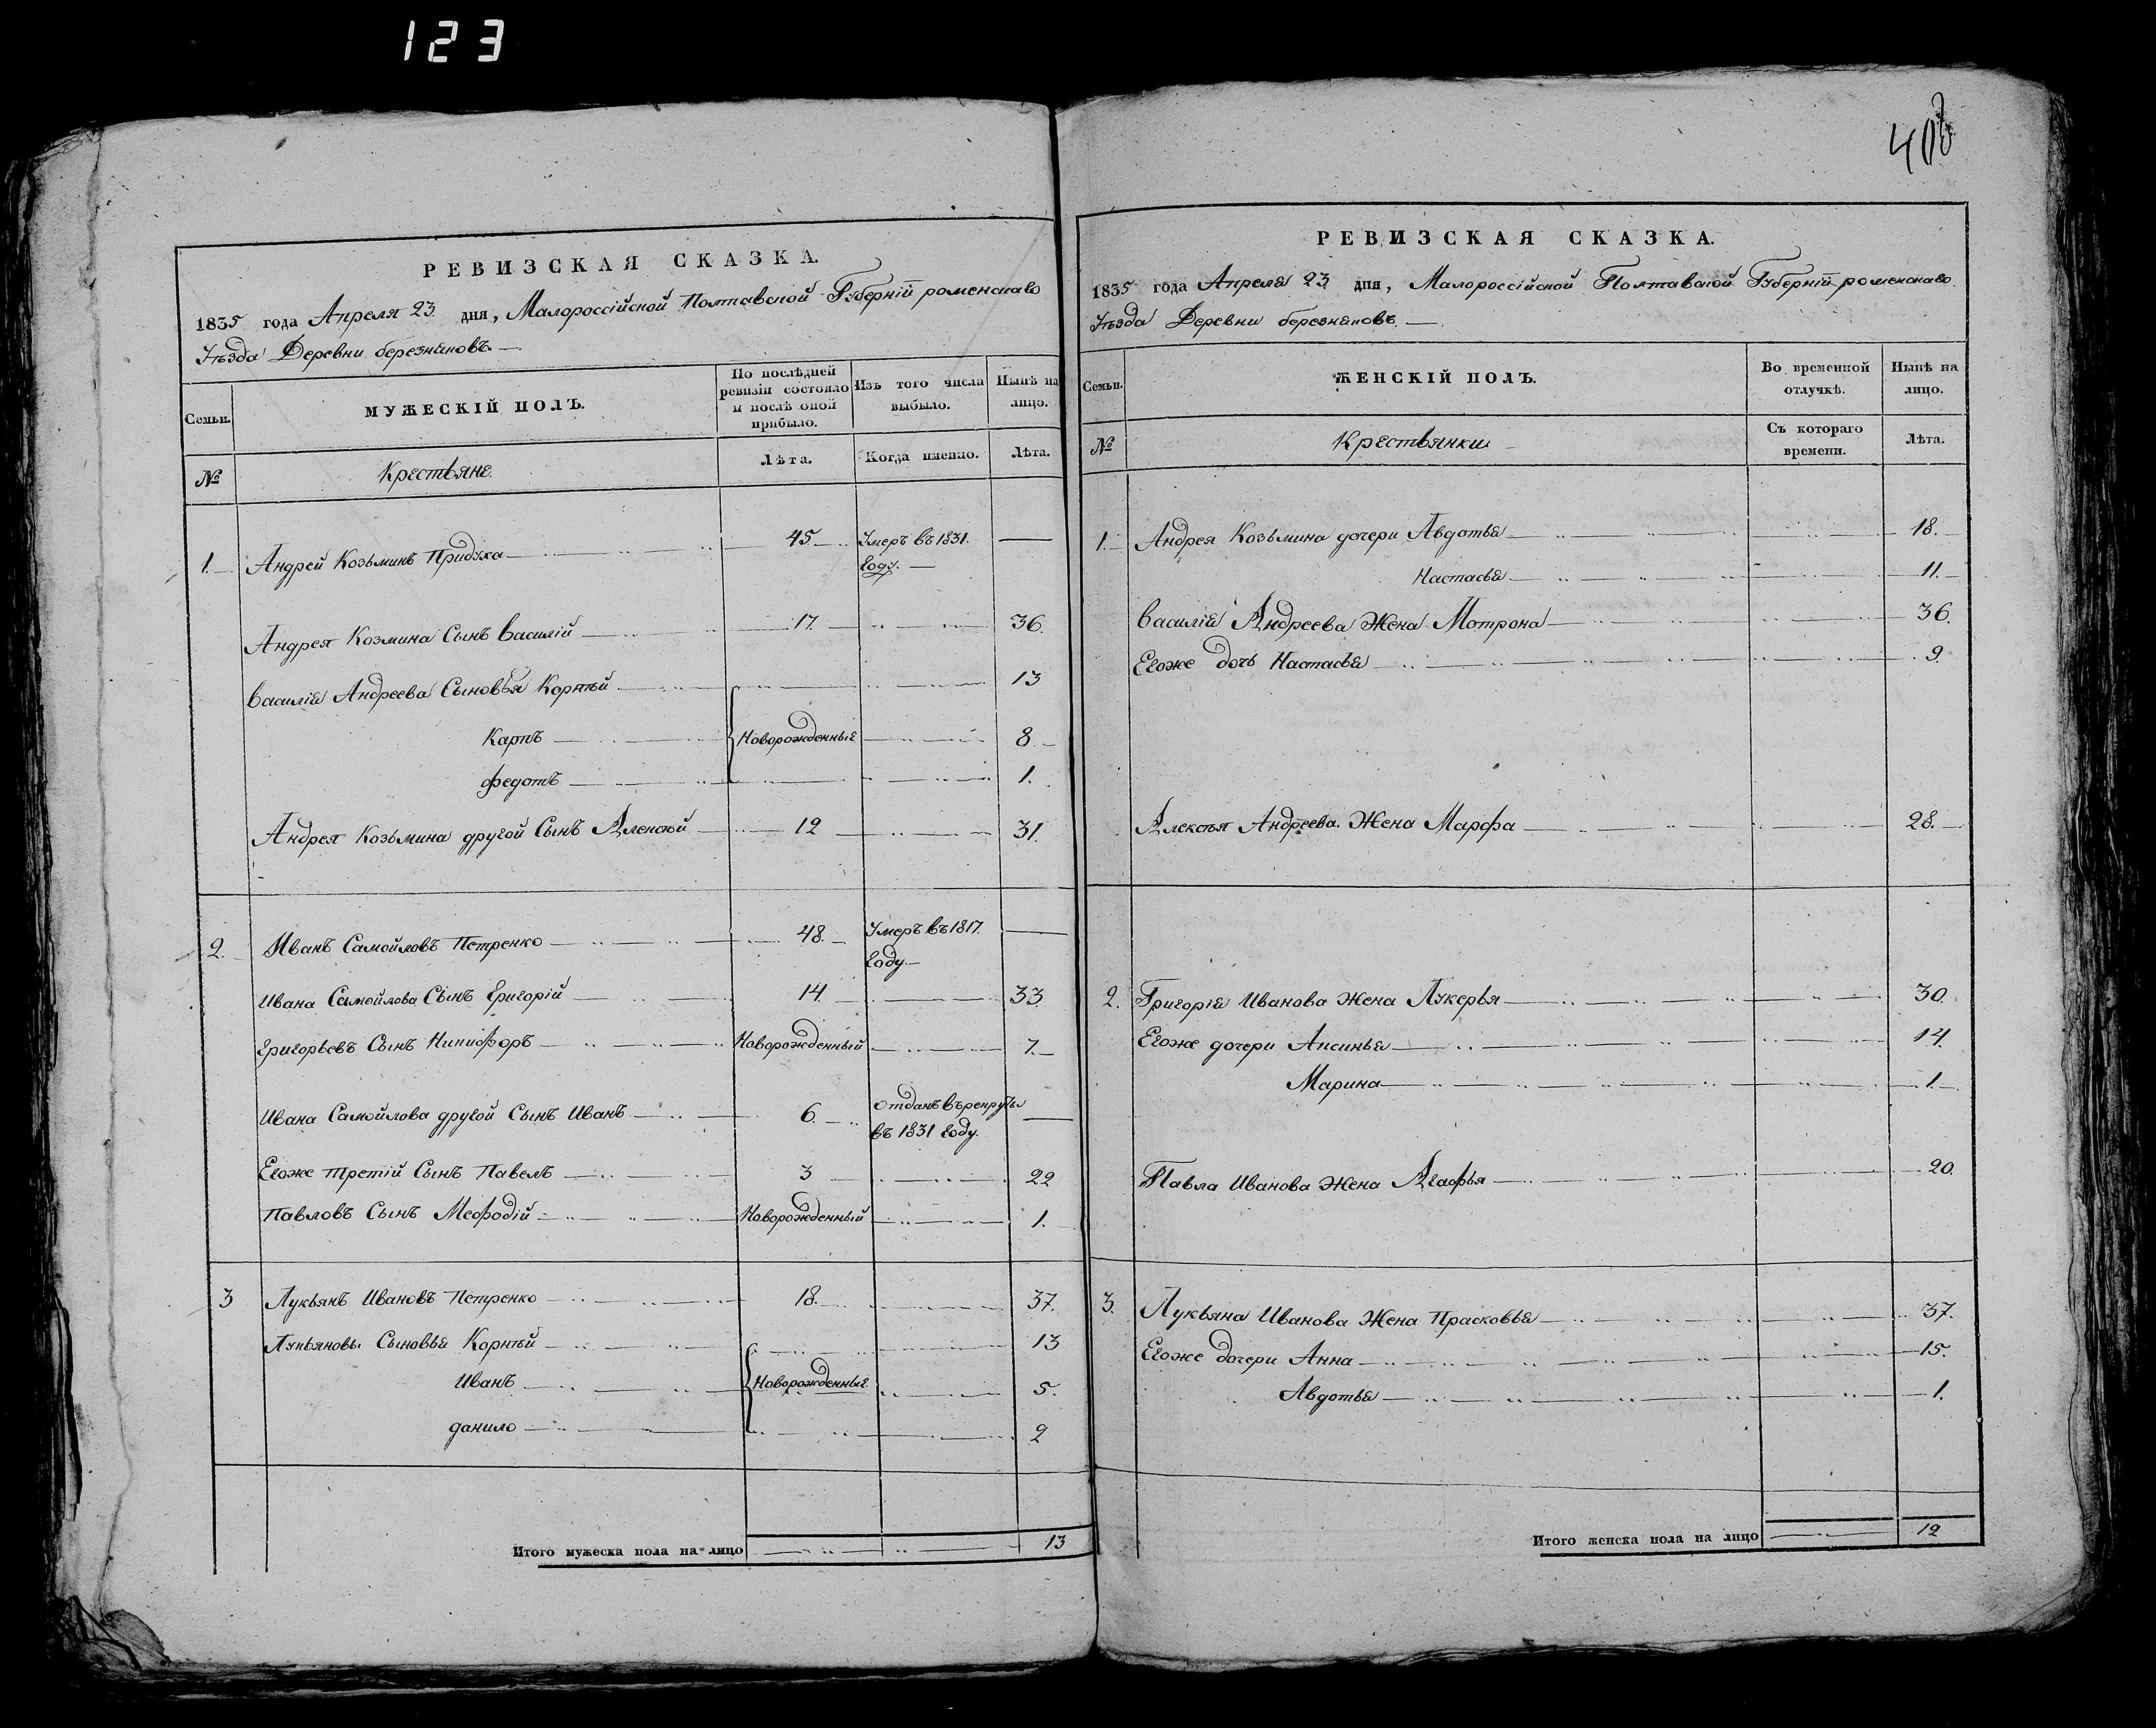 123
РЕВИЗСКАЯ СКАЗКА.
1835 года Апреля 23 дня, Малороссійской Полтавской Губерніи роменскаго
Уѣзда Деревни березняковъ.
Семьи.
МУЖЕСКІЙ ПОЛЪ.
По послѣдней ревизіи состояло и послѣ оной прибыло.
Изъ того числа выбыло.
Нынѣ на лицо.
№
Крестьяне.
Лѣта.
Когда именно.
Лѣта.
1. Андрей Козьминъ Придуха 45 Умеръ въ 1831.
Году.
Андрея Козмина Сынъ Василій 17. 36.
Василія Андреева Сыновья Корнѣй 13
Карпъ Новорожденные 8
федотъ 1.
Андрея Козьмина другой Сынъ Алексѣй 12 31.
2. Иванъ Самойловъ Петренко 48. Умеръ въ 1817.
Году.
Ивана Самойлова Сынъ Григорій 14. 33
Григорьевъ Сынъ Никифоръ Новорожденный 7.
Ивана Самойлова другой Сынъ Иванъ 6. отданъ в рекруты
въ 1831 Году.
Егоже третій Сынъ Павелъ 3 22
Павловъ Сынъ Мефодій Новорожденный 1.
3 Лукьянъ Ивановъ Петренко 18. 37.
Лукьяновы Сыновья Корнѣй 13
Иванъ Новорожденные 5.
данило 2
Итого мужеска пола на лицо 13
408
РЕВИЗСКАЯ СКАЗКА.
1835 года Апреля 23 дня, Малороссійской Полтавской Губерніи роменскаго
Уѣзда Деревни березняковъ.
Семьи.
ЖЕНСКІЙ ПОЛЪ.
Во временной отлучкѣ.
Нынѣ на лицо.
№
Крестьянки
Съ котораго времени.
Лѣта.
1. Андрея Козьмина дочери Авдотья 18.
Настасья 11.
Василія Андреева Жена Мотрона 36.
Егоже дочь Настасья 9.
Алексѣя Андреева Жена Марфа 28.
2. Григорія Иванова Жена Лукерья 30.
Егоже дочери Аксинья 14.
Марина 1.
Павла Иванова Жена Агафья 20.
3. Лукьяна Иванова Жена Прасковья 37.
Егоже дочери Анна 15.
Авдотья 1.
Итого женска пола на лицо 12